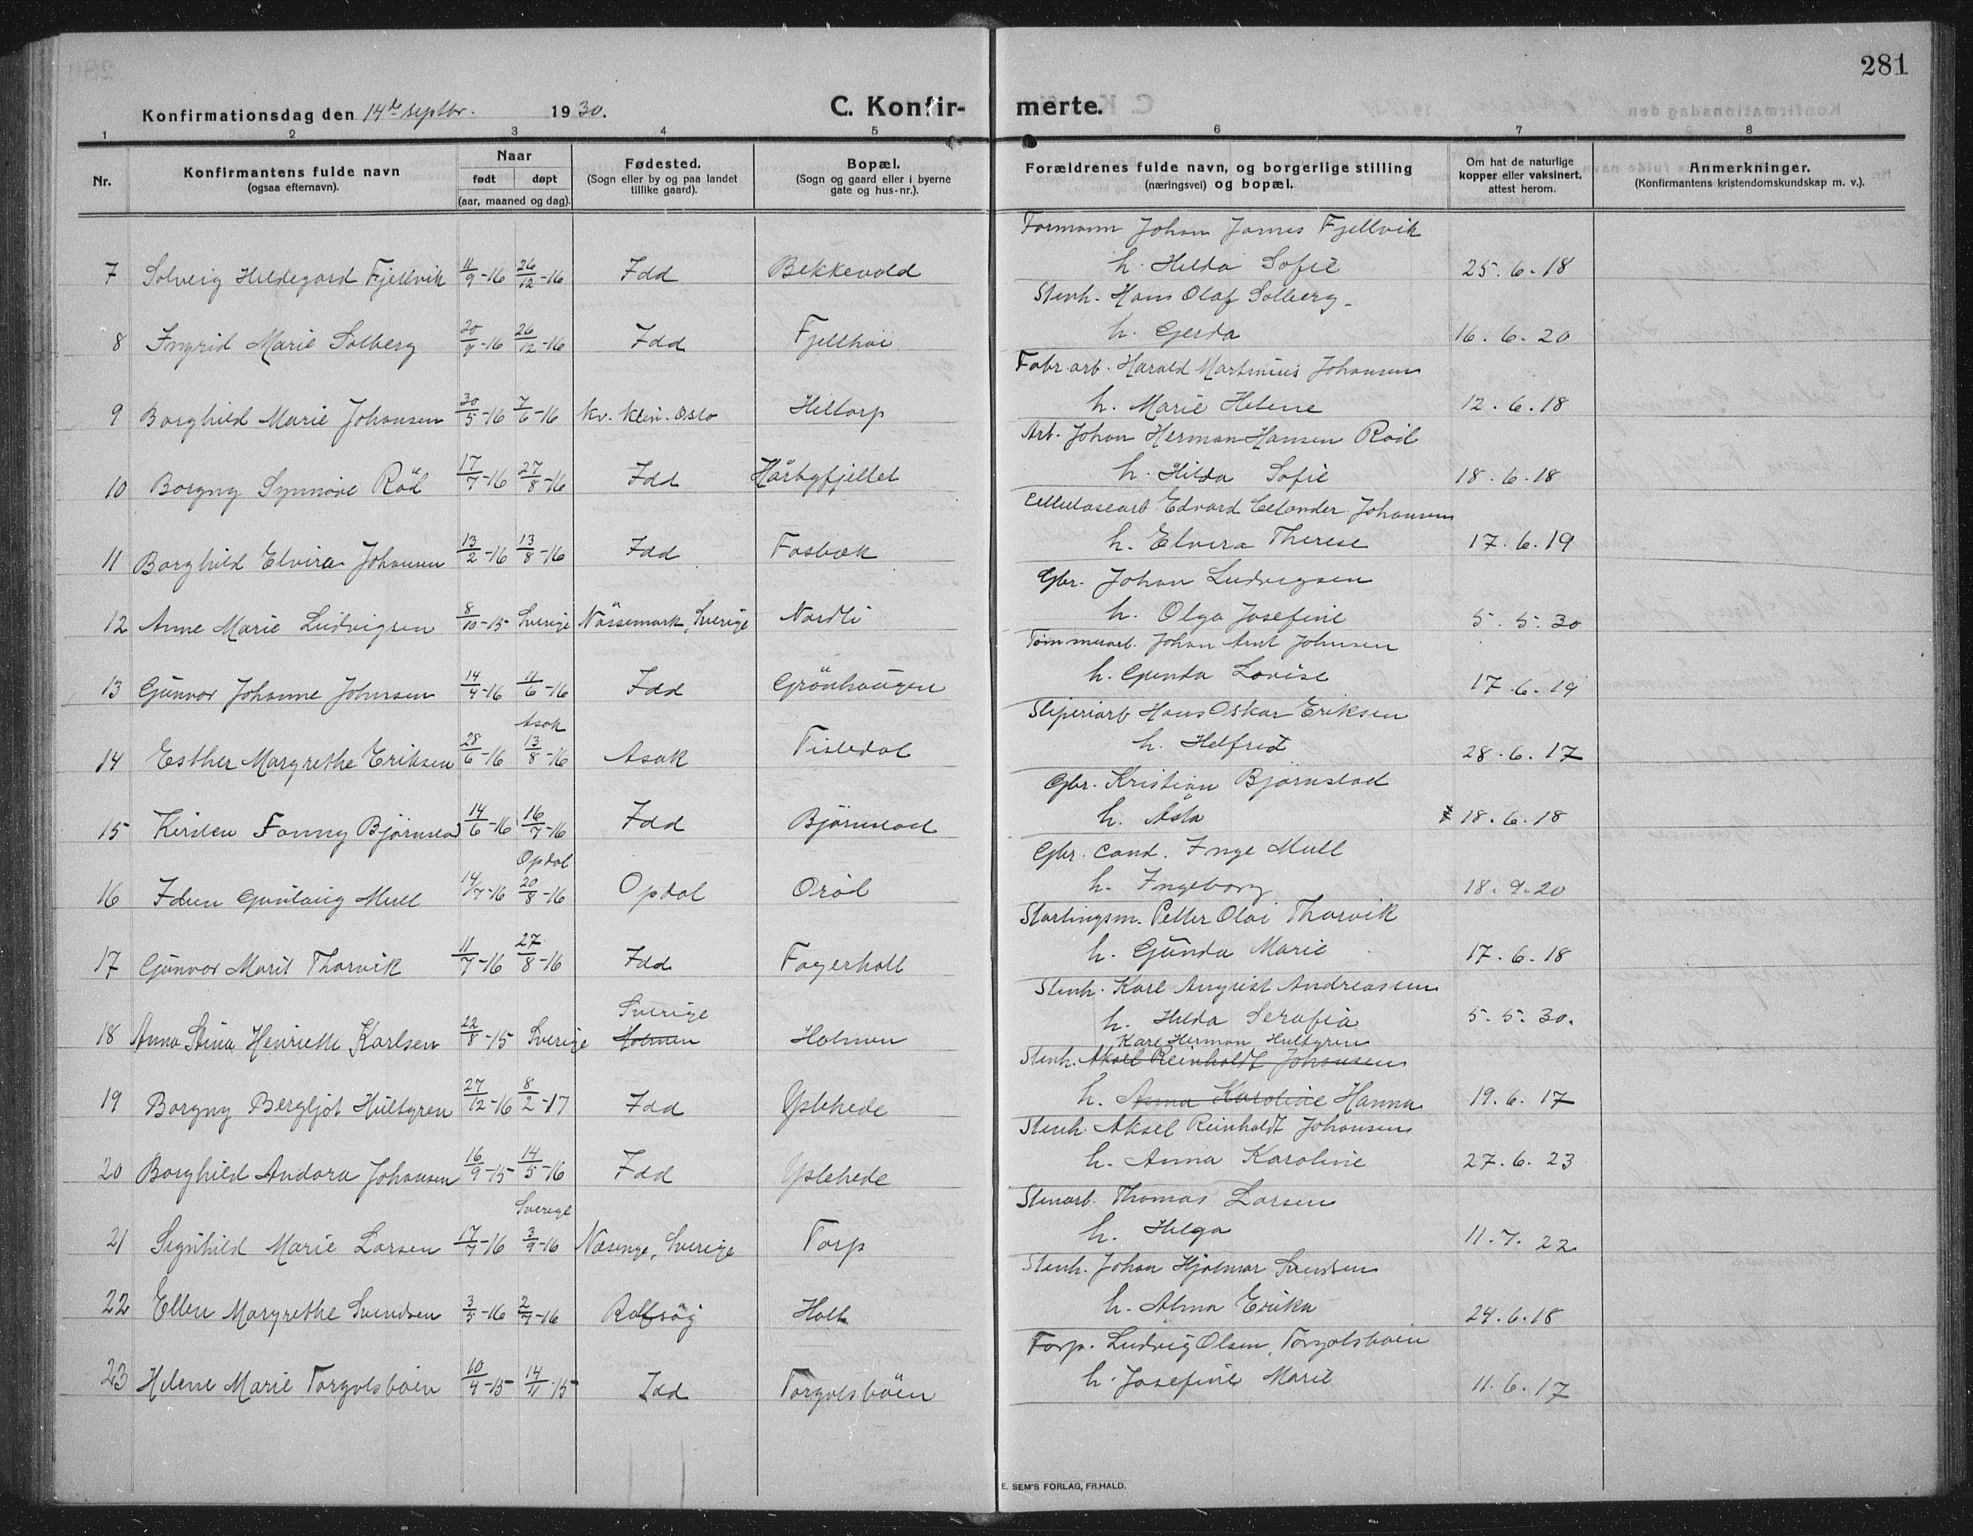 281
Konfirmationsdag den 14de septbr. 1930. C. Konfir- merte.
1 2 3 4 5 6 7 8
Nr. Konfirmantens fulde navn (ogsaa efternavn). Naar født døpt (aar, maaned og dag). Fødested. (Sogn eller by og paa landet tillike gaard). Bopæl. (Sogn og gaard eller i byerne gate og hus-nr.). Forældrenes fulde navn, og borgerlige stilling (næringsvei) og bopæl. Om hat de naturlige kopper eller vaksinert, attest herom. Anmerkninger. (Konfirmantens kristendomskundskap m. v.).
Formann Johan James Fjellvik
7 Solveig Hildegard Fjellvik 11/9-16 26/12-16 Idd Bekkevold h. Hilda Sofie 25.6.18
Stenh. Hans Olaf Solberg
8 Ingrid Marie Solberg 20/9-16 26/12-16 Idd Fjellhöi h. Gerda 16.6.20
Fabr.arb. Harald Martinius Johansen
9 Borghild Marie Johansen 30/5-16 7/6-16 Kv. Klin. Oslo Hiltorp h. Marie Helene 12.6.18
Arb. Johan Herman Hansen Röd
10 Borgny Synnöve Röd 17/7-16 27/8-16 Idd Hårbyfjellet h. Hilda Sofie 18.6.18
Cellulosearb. Edvard Johansen
11 Borghild Elvira Johansen 13/2-16 13/8-16 Idd Fosbæk h. Elvira Therese 17.6.19
Gbr. Johan Ludvigsen
12 Anne Marie Ludvigsen 8/10-15 Sverige Nössemark, Sverige Nordli h. Olga Josefine 5.5.30
Tömmerarb. Johan Arnt Johnsen
13 Gunvor Johanne Johnsen 14/4-16 11/6-16 Idd Grönhaugen h. Gunda Lovise 17.6.19
Asak
Sliperiarb Hans Oskar Eriksen
14 Esther Margrethe Eriksen 28/6-16 13/8-16 Asak Tistedal h. Helfrid 28.6.17
Gbr. Kristian Björnstad
15 Kirsten Fanny Björnstad 14/6-16 16/7-16 Idd Björnstad h. Åsta 18.6.18
Opdal
Gbr. Cand. Inge Mull
16 Idun Gunlaug Mull 14/7-16 20/8-16 Opdal Oröd h. Ingeborg 18.9.20
Stortingsm. Petter Olai Thorvik
17 Gunvor Marit Thorvik 11/7-16 27/8-16 Idd Fagerholt h. Gunda Marie 17.6.18
Stenh. Karl August Andreassen
Sverige
18 Anna Stina Henriette Karlsen 22/8-15 Sverige Holmen Holmen h. Hilda Serafia 5.5.30.
Karl Herman Hultgren
Stenh. Aksel Reinholdt Johansen
19 Borgny Bergljot Hultgren 27/12-16 8/2-17 Idd Ystehede h. Anna Karoline Hanna 19.6.17
Stenh. Aksel Reinholdt Johansen
20 Borghild Andora Johansen 16/9-15 14/5-16 Idd Ystehede h. Anna Karoline 27.6.23
Sverige
Stenarb. Thomas Larsen
21 Signhild Marie Larsen 17/7-16 3/9-16 Næsinge, Sverige Torp h. Helga 11.7.22
Stenh. Johan Hjalmar Svendsen
22 Ellen Margrethe Svendsen 3/5-16 2/7-16 Rolfsöy Holt h. Alma Erika 24.6.18
Forp. Ludvig Olsen, Torgalsböen
23 Helene Marie Torgalsböen 10/4-15 14/11-15 Idd Torgalsböen h. Josefine Marie 11.6.17
E. SEM'S FORLAG, FR.HALD.